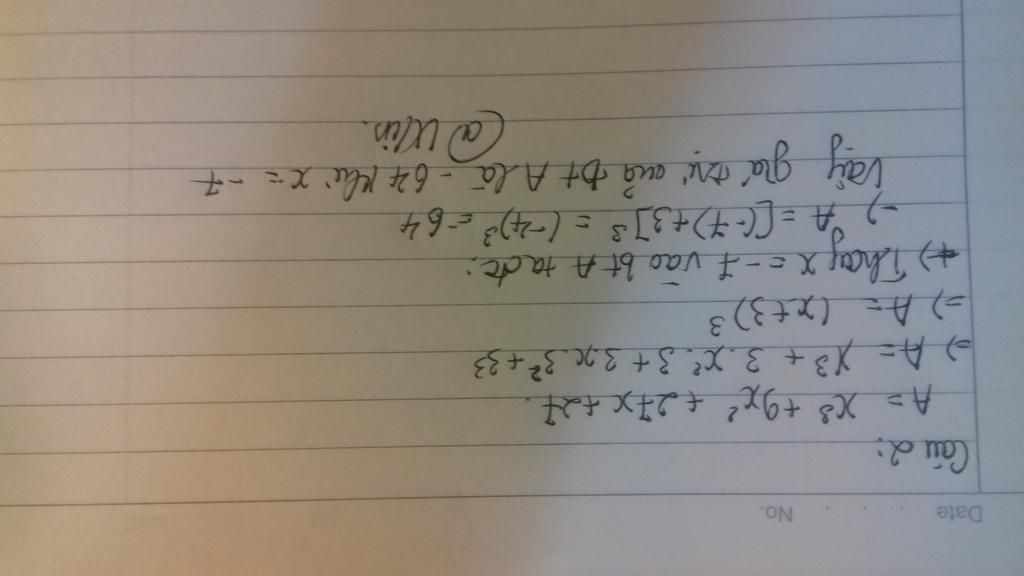 Date . . . No.
Câu 2:
A = x³ + 9x² + 27x + 27.
=> A = x³ + 3.x².3 + 3.x.3² + 3³
=> A = (x+3)³
+) Thay x = -7 vào bt A ta đc:
-) A = [(-7)+3]³ = (-4)³ = -64
Vậy giá trị của bt A là -64 khi x = -7